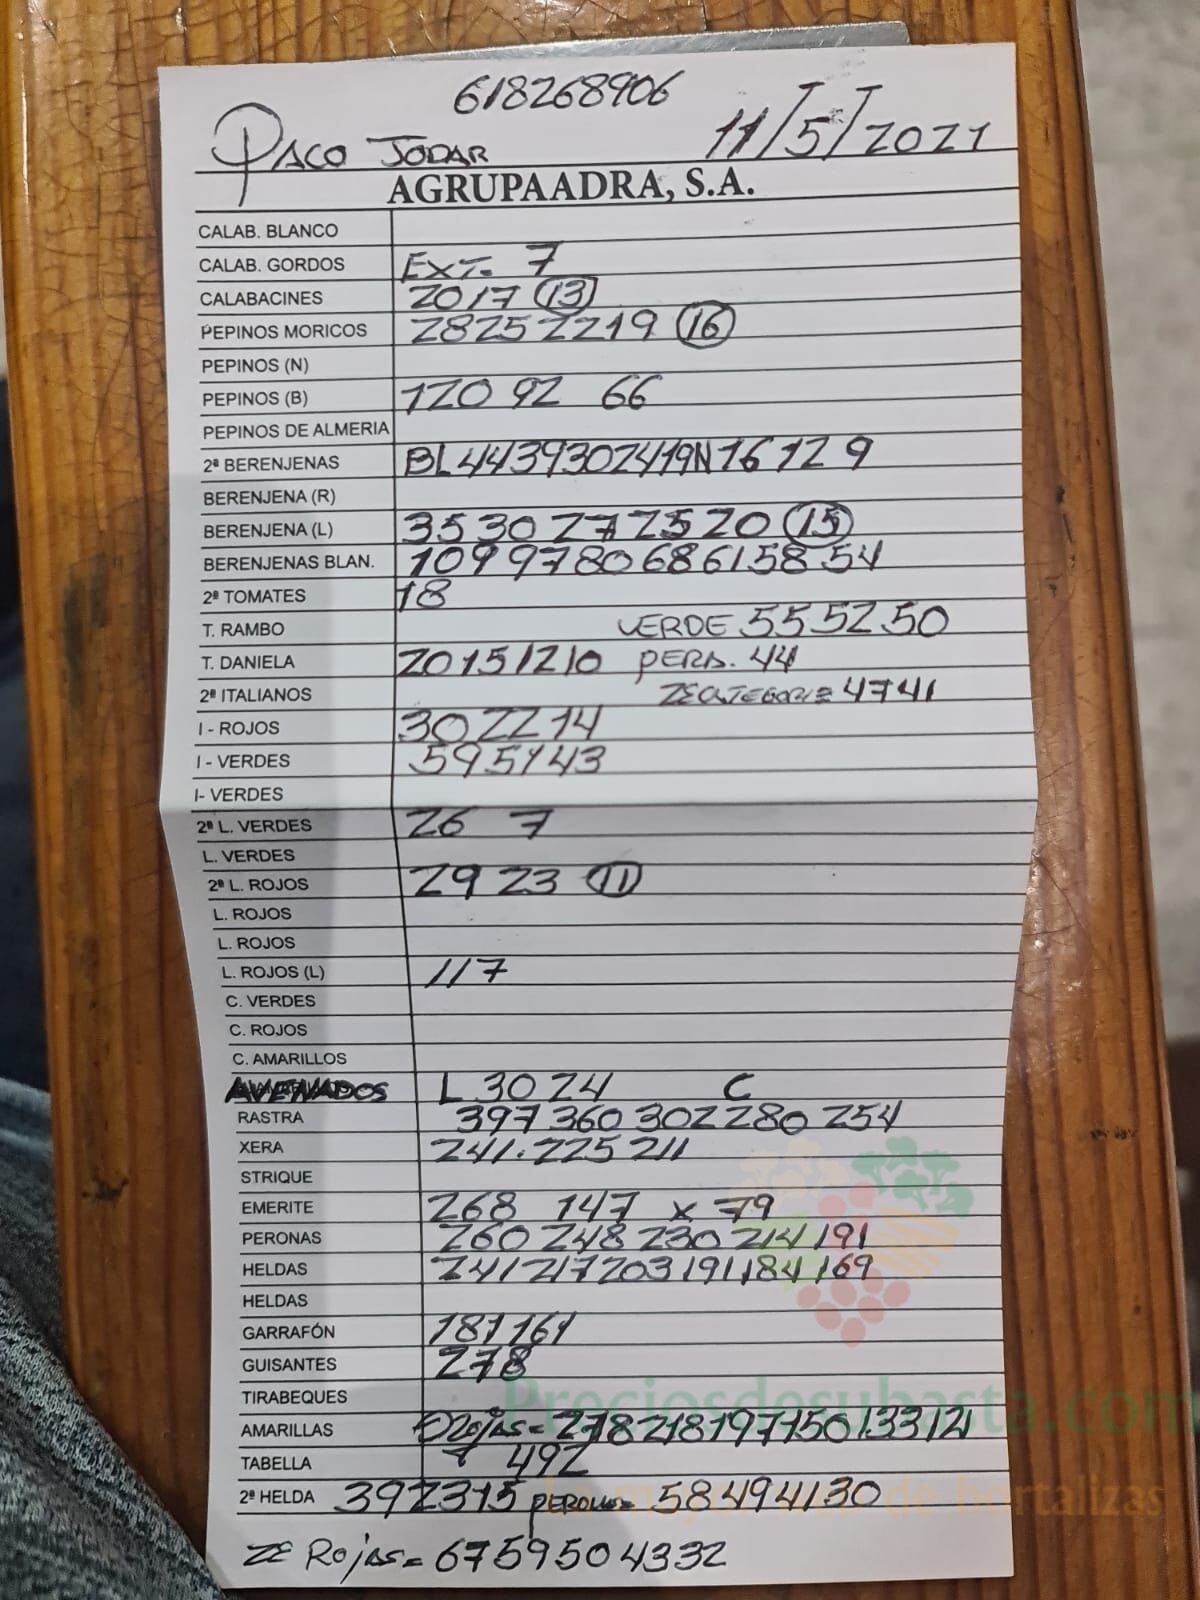 618268906
PACO JODAR 11/5/2021
AGRUPAADRA, S.A.
CALAB. BLANCO
CALAB. GORDOS EXT. 7
CALABACINES 20 17 (13)
PEPINOS MORICOS 28 25 22 19 (16)
PEPINOS (N)
PEPINOS (B) 120 92 66
PEPINOS DE ALMERIA
2ª BERENJENAS BL 44 39 30 24 19 N 16 12 9
BERENJENA (R)
BERENJENA (L) 35 30 27 25 20 (15)
BERENJENAS BLAN. 109 97 80 68 61 58 54
2ª TOMATES 18
T. RAMBO VERDE 55 52 50
T. DANIELA 20 15 12 10 PERA. 44
2ª ITALIANOS 47 41
I - ROJOS 30 22 14
I - VERDES 59 51 43
I- VERDES
2ª L. VERDES 26 7
L. VERDES
2ª L. ROJOS 29 23 (11)
L. ROJOS
L. ROJOS
L. ROJOS (L) 117
C. VERDES
C. ROJOS
C. AMARILLOS
AVENADOS L 30 24 C
RASTRA 397 360 302 280 254
XERA 241. 225 211
STRIQUE
EMERITE 268 147 x 79
PERONAS 260 248 230 214 191
HELDAS 241 217 203 191 184 169
HELDAS
GARRAFÓN 187 161
GUISANTES 278
TIRABEQUES
AMARILLAS ROJAS= 278 218 197 150 133 121
TABELLA 492
2ª HELDA 392 315 PERONA= 58 49 41 30
2ª ROJAS= 67 59 50 43 32
Preciosdesubasta.com
La mayor web de hortalizas